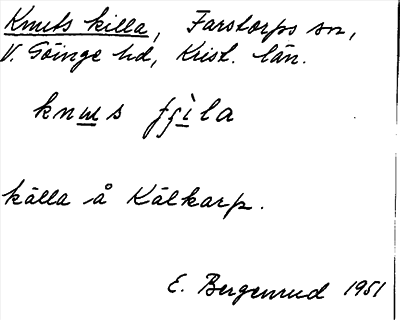 Knuts killa, Farstorps sn,
V. Göinge hd, Krist. län.
knɯs fʒìla
källa å Kälkarp.
E. Bergenrud 1951